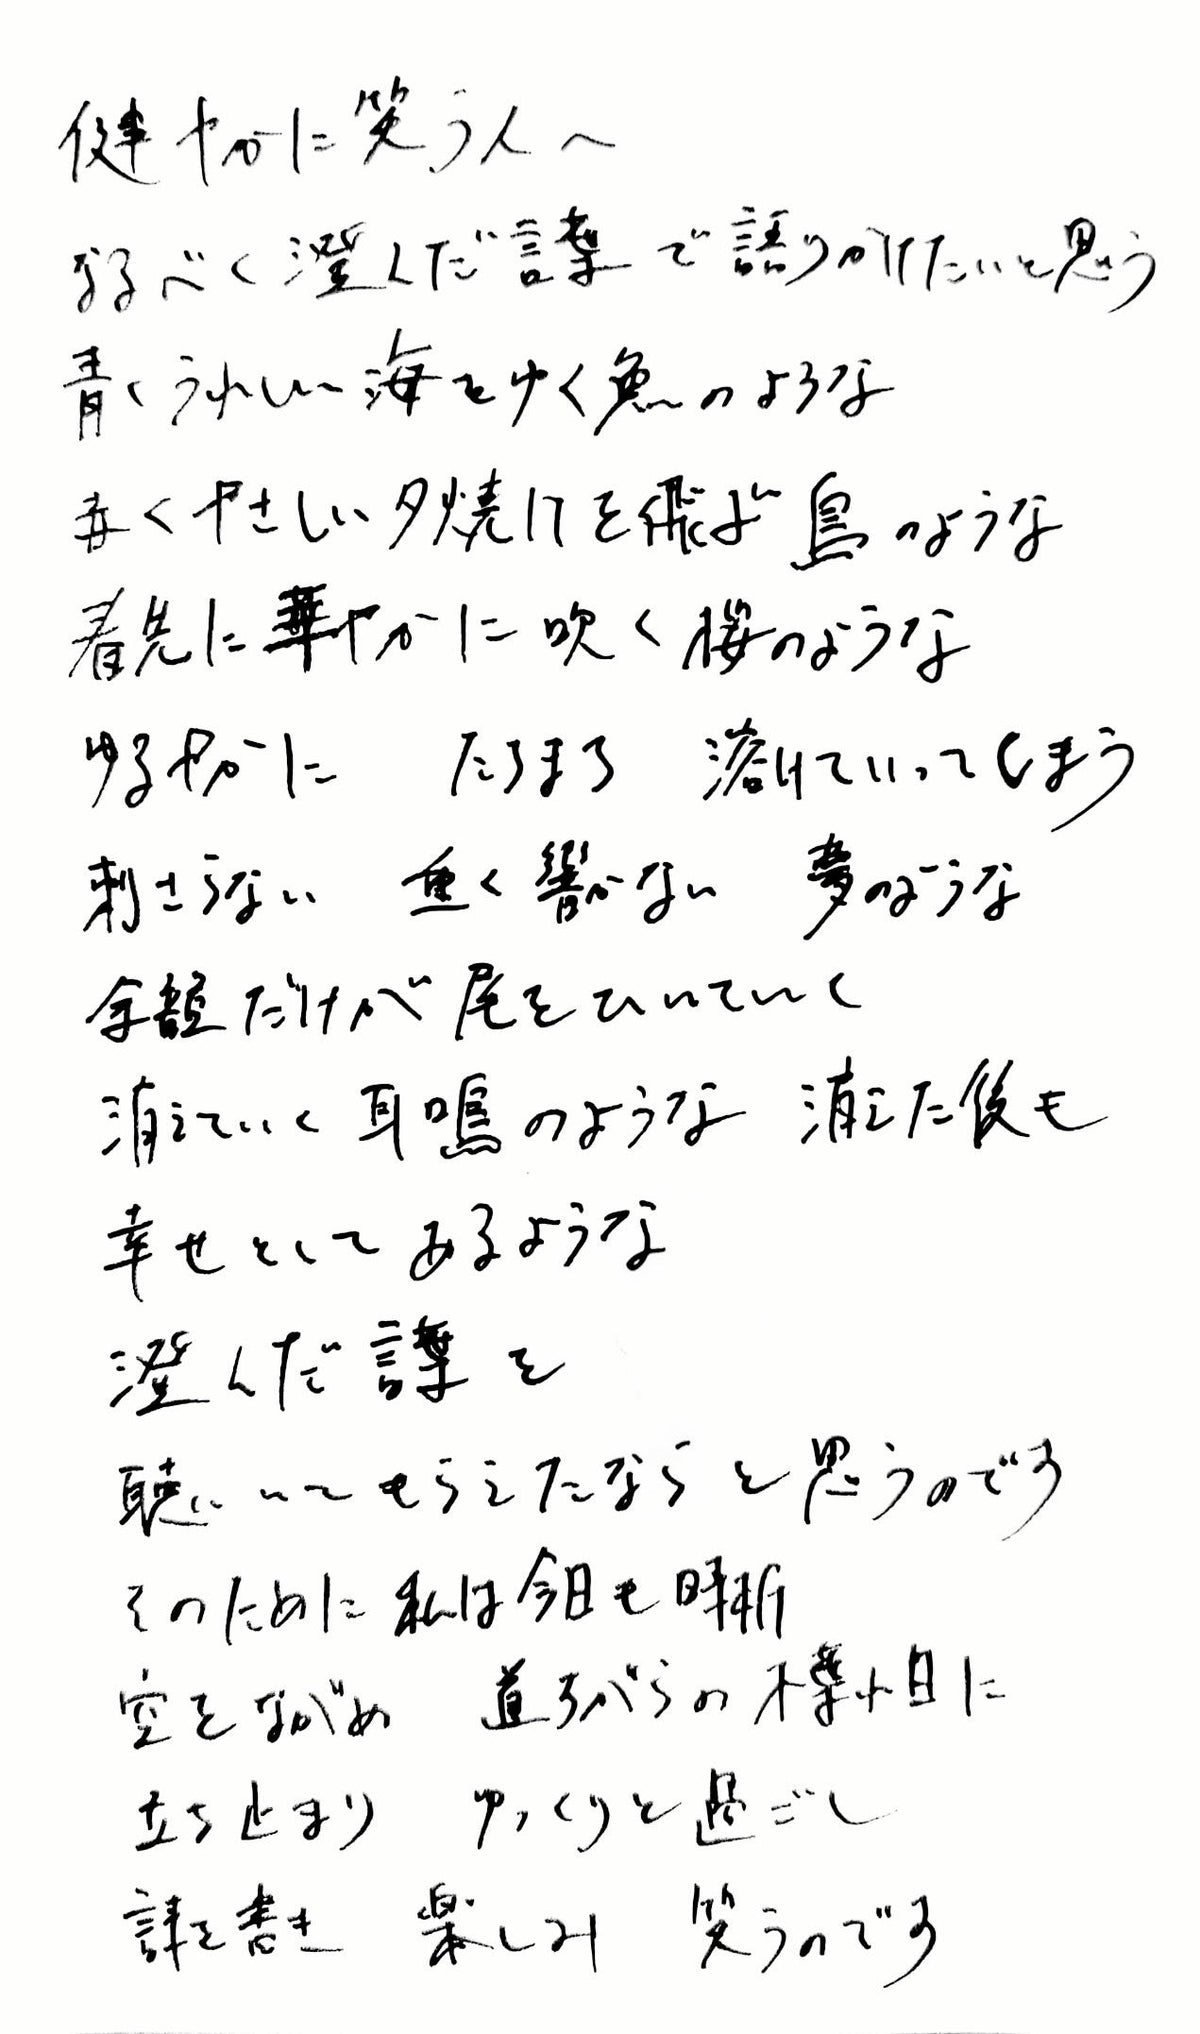 健やかに笑う人へ
なるべく澄んだ言葉で語りかけたいと思う
青くうれしい海をゆく魚のような
赤くやさしい夕焼けを飛ぶ鳥のような
春先に華やかに吹く桜のような
ゆるやかに　たちまち　溶けていってしまう
刺さらない　重く響かない　夢のような
余韻だけが尾をひいていく
消えていく耳鳴のような　消えた後も
幸せとしてあるような
澄んだ言葉を
聴いてもらえたならと思うのです
そのために私は今日も時折
空をながめ　道すがらの木葉れ日に
立ち止まり　ゆっくりと過ごし
詩を書き　楽しみ　笑うのです